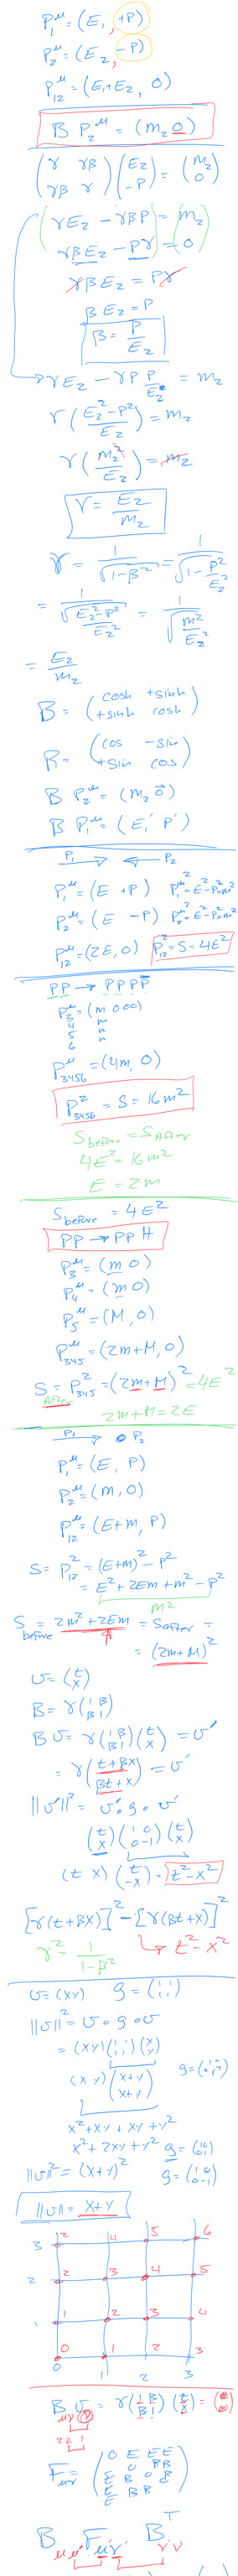 P₁^μ = (E₁, +P)
P₂^μ = (E₂, -P)
P₁₂^μ = (E₁+E₂, 0)
B P₂^μ = (m₂ 0)
(γ γβ / γβ γ)(E₂ / -P) = (m₂ / 0)
γE₂ - γβP = m₂
γβE₂ - Pγ = 0
γβE₂ = Pγ
βE₂ = P
β = P/E₂
γE₂ - γP P/E₂ = m₂
γ((E₂² - P²)/E₂) = m₂
γ(m₂²/E₂) = m₂
γ = E₂/m₂
γ = 1/√(1-β²) = 1/√(1 - P²/E₂²)
= 1/√((E₂²-P²)/E₂²) = 1/√(m²/E₂²)
= E₂/m₂
B = (cosh +sinh / +sinh cosh)
R = (cos -sin / +sin cos)
B P₂^μ = (m₂ 0⃗)
B P₁^μ = (E₁' P')
P₁ → ← P₂
P₁^μ = (E +P) P₁^μ² = E²-P² = m²
P₂^μ = (E -P) P₂^μ² = E²-P² = m²
P₁₂^μ = (2E, 0) P₁₂² = S = 4E²
PP → PPPP̄
P₃^μ = (m 000)
4 "
5 "
6 "
P₃₄₅₆^μ = (4m, 0)
P₃₄₅₆² = S = 16m²
S before = S After
4E² = 16m²
E = 2m
S before = 4E²
PP → PP H
P₃^μ = (m 0)
P₄^μ = (m 0)
P₅^μ = (M, 0)
P₃₄₅^μ = (2m+M, 0)
S After = P₃₄₅² = (2m+M)² = 4E²
2m+M = 2E
P₁ → • P₂
P₁^μ = (E, P)
P₂^μ = (m, 0)
P₁₂^μ = (E+m, P)
S = P₁₂² = (E+m)² - P²
= E² + 2Em + m² - P²
m²
S before = 2m² + 2Em = S after =
= (2m+M)²
v = (t / x)
B = γ(1 β / β 1)
B v = γ(1 β / β 1)(t / x) = v'
= γ(t+βx / βt+x) = v'
||v'||² = v' · g · v'
(t / x)(1 0 / 0 -1)(t / x)
(t x)(t / -x) = t² - x²
[γ(t+βx)]² - [γ(βt+x)]²
γ² = 1/(1-β²) ↳ t² - x²
v = (x y) g = (1 1 / 1 1)
||v||² = v · g · v
= (x y)(1 1 / 1 1)(x / y)
(x y)(x+y / x+y)
x² + xy + xy + y²
x² + 2xy + y² g = (1 0 / 0 1)
||v||² = (x+y)² g = (1 0 / 0 -1)
||v|| = x+y
3 3 4 5 6
2 2 3 4 5
1 1 2 3 4
0 1 2 3
0 1 2 3
B v = γ(1 β / β 1)
μν ν
22 1
F μν =
B F B^T
μμ' μ'ν' ν'ν